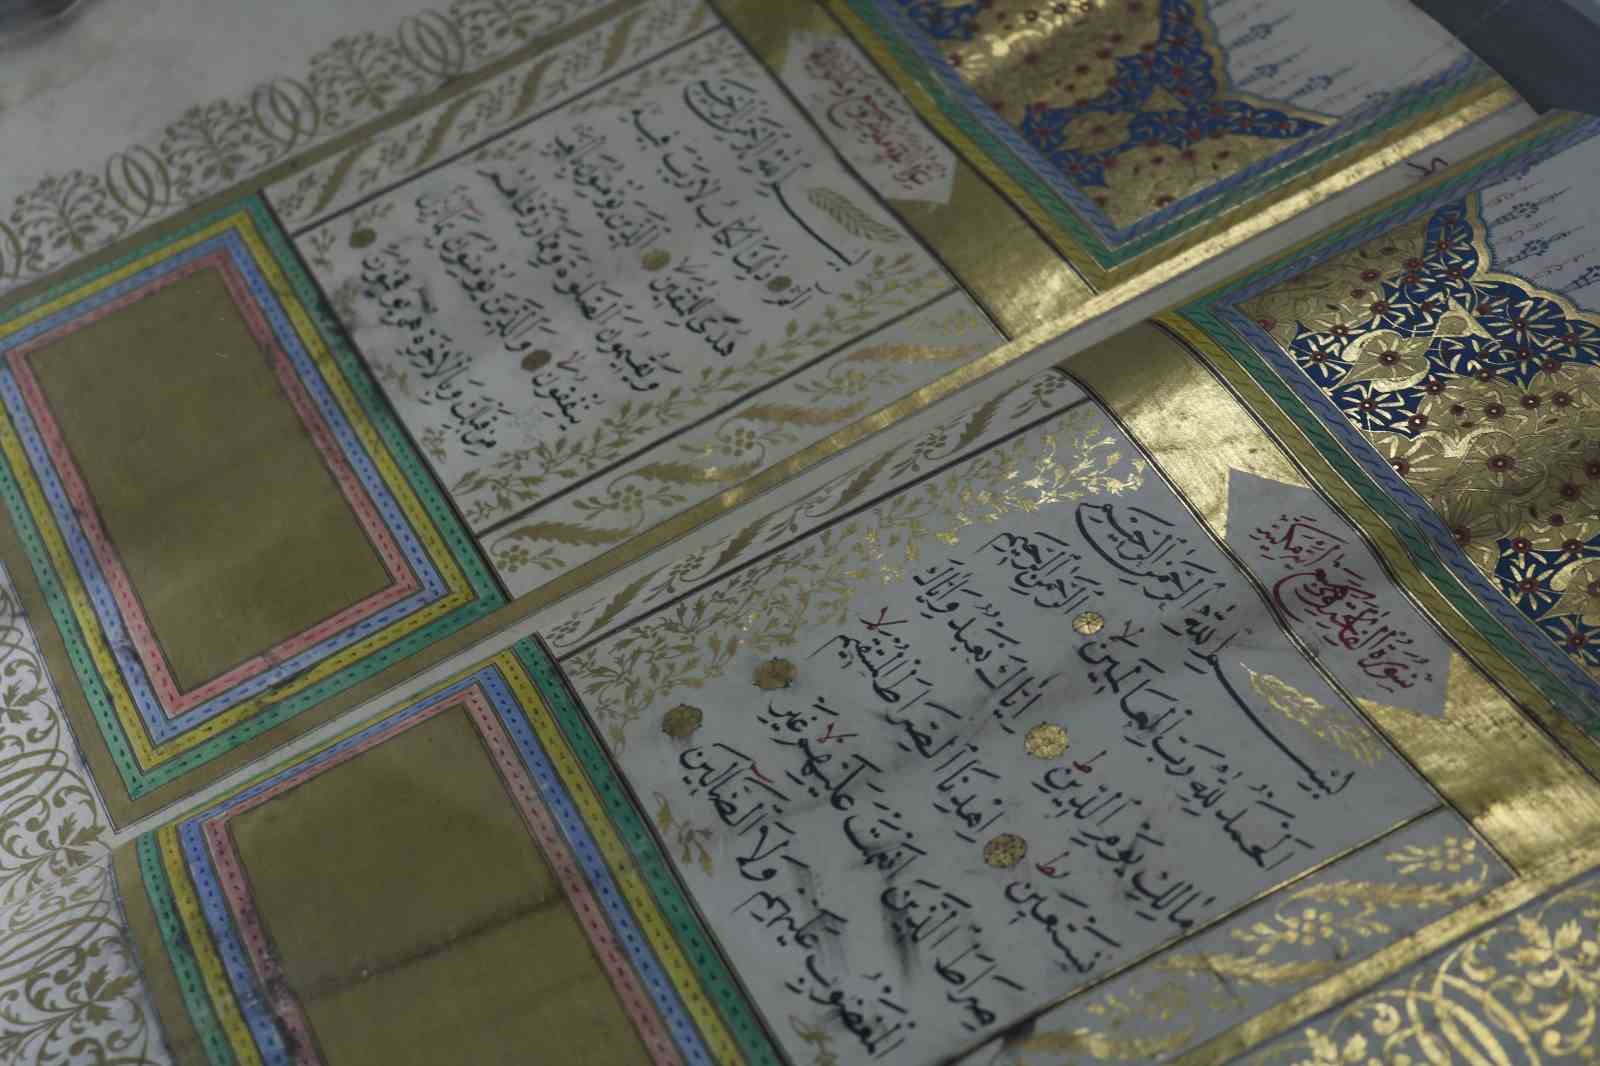 سُورَةُ الفَاتِحَةِ
بِسْمِ اللّٰهِ الرَّحْمٰنِ الرَّحِيمِ
اَلْحَمْدُ لِلّٰهِ رَبِّ الْعَالَمِينَ الرَّحْمٰنِ الرَّحِيمِ
مَالِكِ يَوْمِ الدِّينِ اِيَّاكَ نَعْبُدُ وَاِيَّاكَ
نَسْتَعِينُ اِهْدِنَا الصِّرَاطَ الْمُسْتَقِيمَ
صِرَاطَ الَّذِينَ اَنْعَمْتَ عَلَيْهِمْ غَيْرِ
الْمَغْضُوبِ عَلَيْهِمْ وَلَا الضَّالِّينَ
بِسْمِ اللّٰهِ الرَّحْمٰنِ الرَّحِيمِ
الٓمٓ ذٰلِكَ الْكِتَابُ لَا رَيْبَ فِيهِ
هُدًى لِلْمُتَّقِينَ الَّذِينَ يُؤْمِنُونَ بِالْغَيْبِ
وَيُقِيمُونَ الصَّلٰوةَ وَمِمَّا رَزَقْنَاهُمْ
يُنْفِقُونَ وَالَّذِينَ يُؤْمِنُونَ بِمَا
مِنْ قَبْلِكَ وَبِالْاٰخِرَةِ هُمْ يُوقِنُونَ